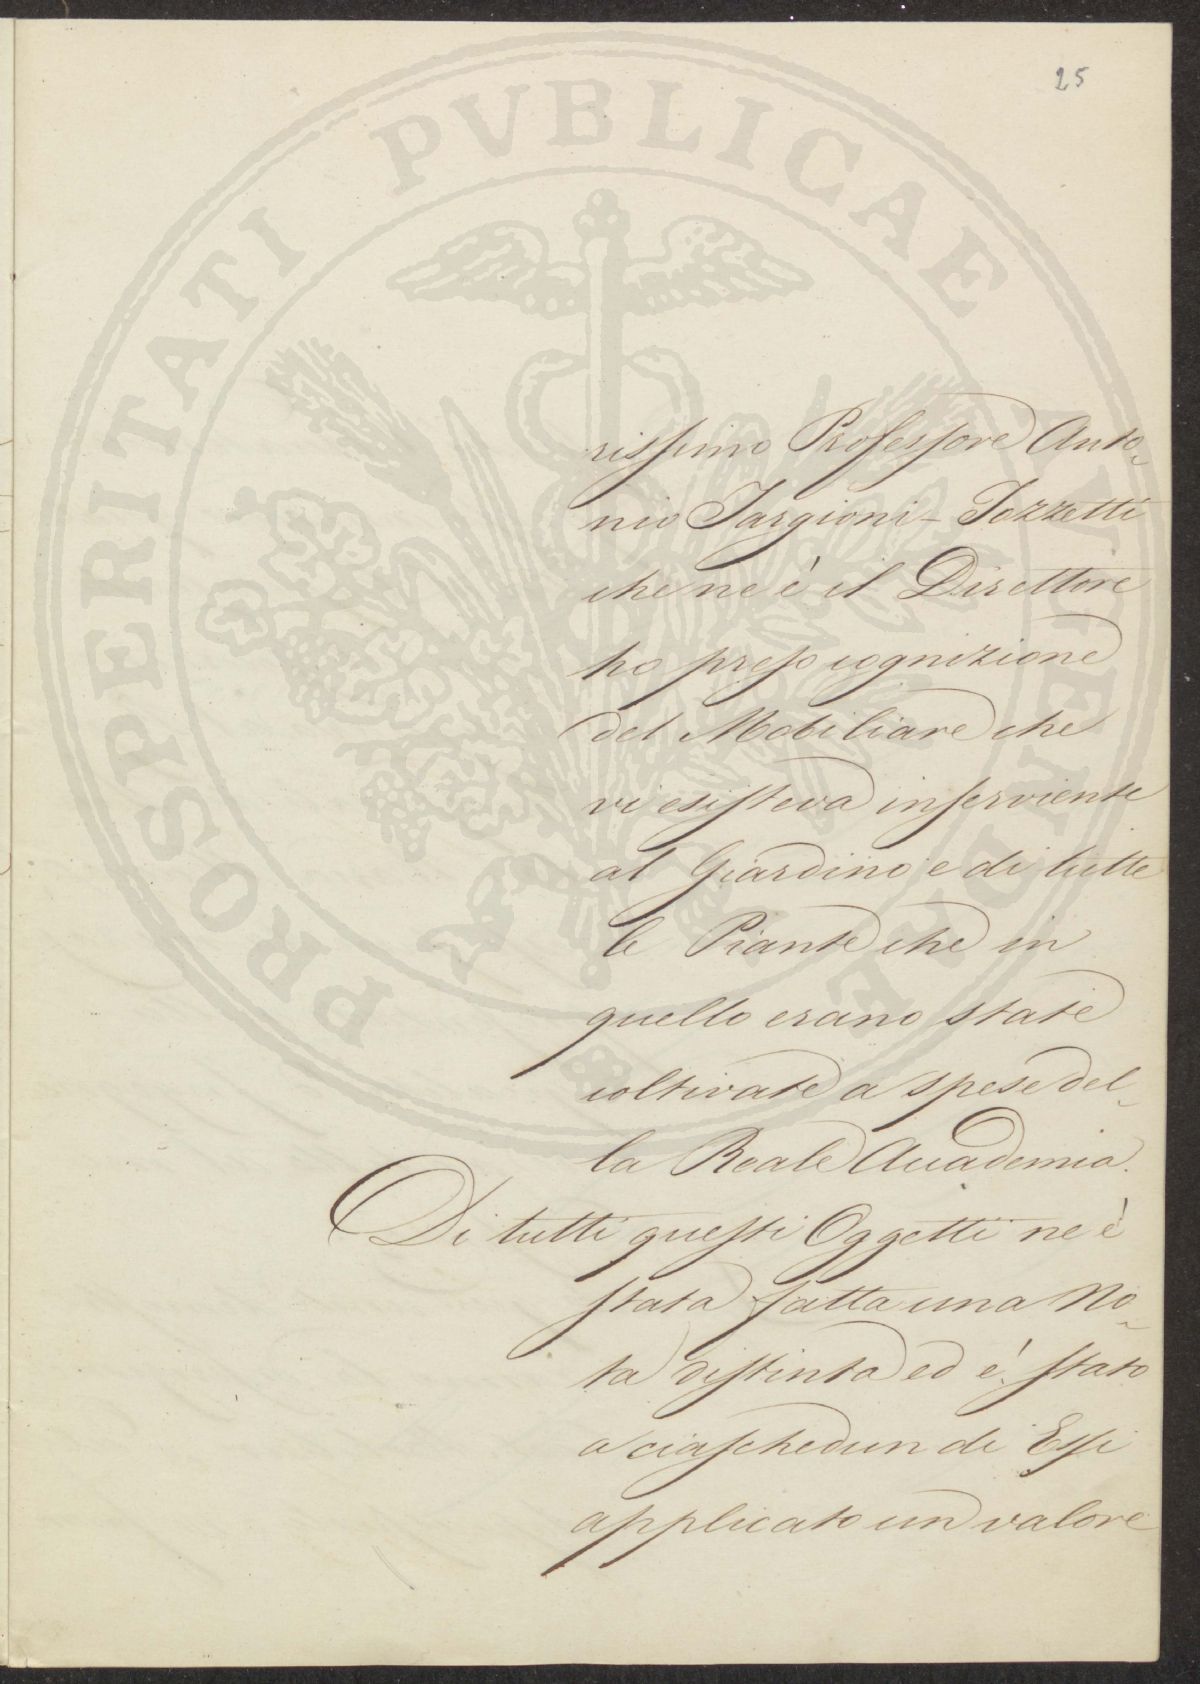 25
rissimo Professore Anto-
nio Targioni-Tozzetti
che ne è il Direttore
ho preso cognizione
del Mobiliare che
vi esisteva inserviente
al Giardino e di tutte
le Piante che in
quello erano state
coltivate a spese del-
la Reale Accademia.
Di tutti questi Oggetti ne è
stata fatta una No-
ta distinta ed è stato
a ciaschedun di Essi
applicato un valore
PROSPERITATI PVBLICAE AVGENDAE